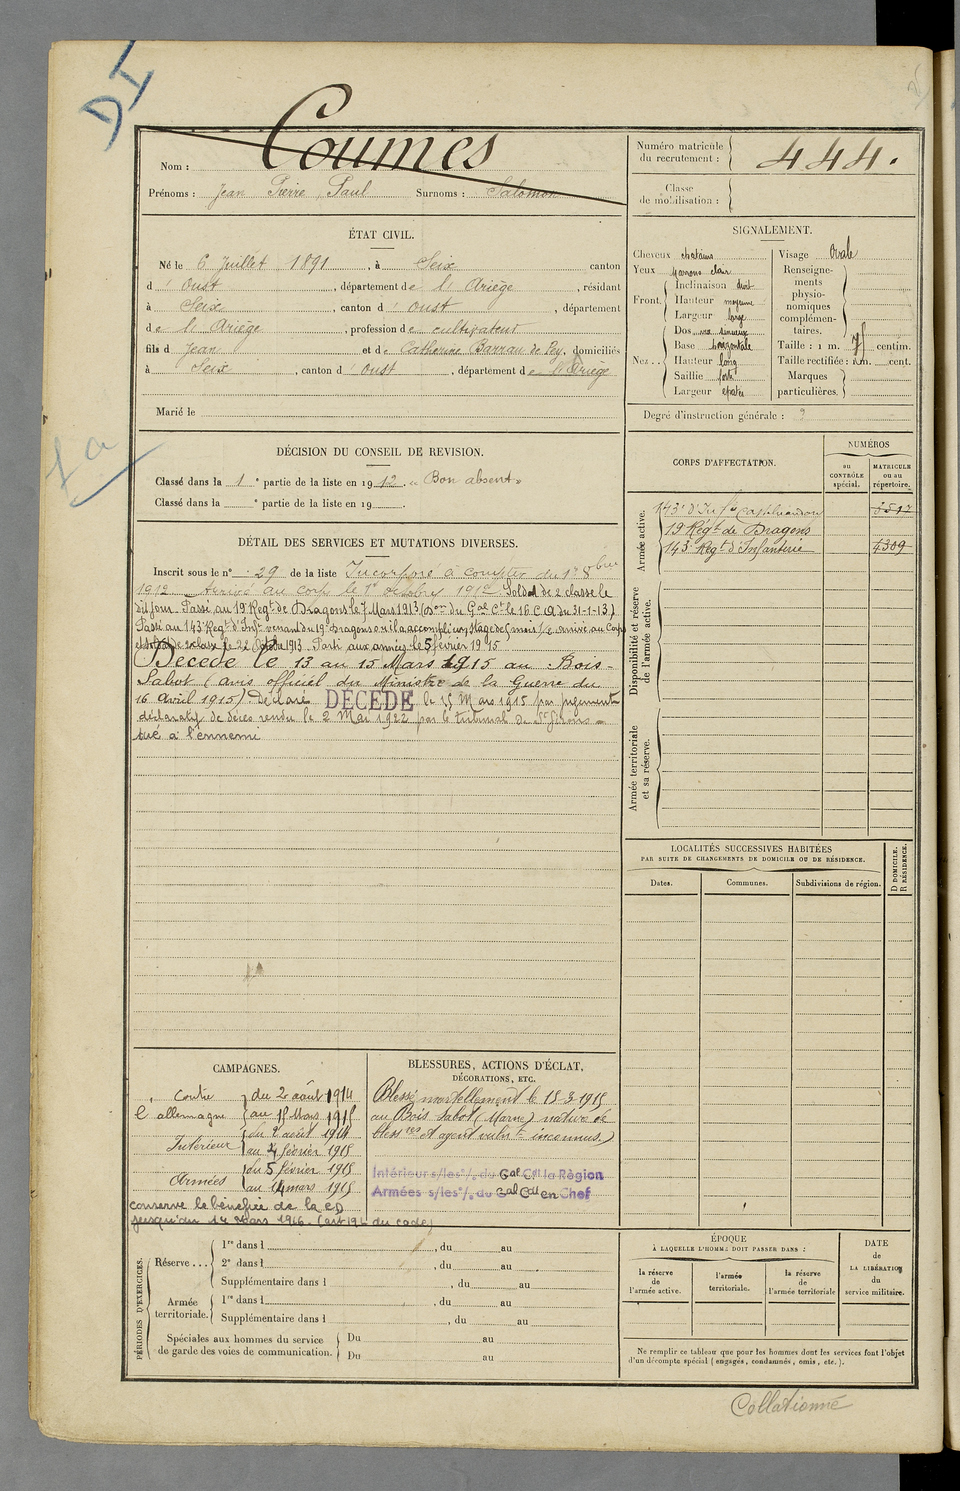 DI
Nom : Coumes
Prénoms : Jean Pierre Paul Surnoms : Salomon
Numéro matricule du recrutement : 444.
Classe de mobilisation :
ÉTAT CIVIL.
Né le 6 Juillet 1891, à Seix canton
d'Oust, département de l'Ariège, résidant
à Seix, canton d'Oust, département
de l'Ariège, profession de cultivateur
fils d Jean et de Catherine Barrau de Pey, domiciliés
à Seix, canton d'Oust, département de l'Ariège
Marié le
SIGNALEMENT.
Cheveux chatains
Yeux marrons clair
Front. Inclinaison droit
Hauteur moyenne
Largeur large
Nez.. Dos sinueux
Base horizontale
Hauteur long
Saillie forte
Largeur épaté
Visage Ovale
Renseignements physionomiques complémentaires.
Taille : 1 m. 7 centim.
Taille rectifiée : 1 m. cent.
Marques particulières.
Degré d'instruction générale : 3
1a
DÉCISION DU CONSEIL DE REVISION.
Classé dans la 1e partie de la liste en 1912. « Bon absent »
Classé dans la e partie de la liste en 19 .
DÉTAIL DES SERVICES ET MUTATIONS DIVERSES.
Inscrit sous le n° 29 de la liste Incorporé à compter du 1er 8bre
1912 Arrivé au corps le 1er octobre 1912. Soldat de 2 classe le
dit jour. Passé au 19 Regt de Dragons le 7 Mars 1913 (Don du Gal Ct le 16 C.A du 31-1-13)
Passé au 143 Regt d'Infie venant du 19 Dragons où il a accompli un stage de 6 mois arrivé au Corps
le 22 1913. Parti aux armées le 5 février 1915
Décédé le 13 au 15 Mars 1915 au Bois-
Sabot (avis officiel du Ministre de la Guerre du
16 avril 1915). Déclaré DÉCÉDÉ le 15 Mars 1915 par jugement
déclaratif de décès rendu le 2 Mai 1922 par le tribunal de St Girons =
tué à l'ennemi
CORPS D'AFFECTATION.
NUMÉROS
au CONTRÔLE spécial.
MATRICULE ou au répertoire.
Armée active.
143e d'Infie Castelnaudary
19 Régt de Dragons
143 Regt d'Infanterie 4309
Disponibilité et réserve de l'armée active.
Armée territoriale et sa réserve.
LOCALITÉS SUCCESSIVES HABITÉES
PAR SUITE DE CHANGEMENTS DE DOMICILE OU DE RÉSIDENCE.
Dates.
Communes.
Subdivisions de région.
D DOMICILE. R RÉSIDENCE.
CAMPAGNES.
contre l'allemagne
du 2 août 1914
au 15 Mars 1915
Intérieur
du 2 août 1914
au 4 février 1915
Armées
du 5 février 1915
au 14 mars 1915
conserve le bénéfice de la CD
jusqu'au 14 Mars 1916. (art 19 L du code)
BLESSURES, ACTIONS D'ÉCLAT,
DÉCORATIONS, ETC.
Blessé mortellement le 15-3-1915
au Bois Sabot (Marne) nature de
blessres et agent vulnt inconnus.)
Intérieur s/les o/. du Gal Ct la Région
Armées s/les o/. du Gal Ct en Chef
PÉRIODES D'EXERCICES.
Réserve...
1re dans l , du au
2e dans l , du au .
Supplémentaire dans l , du au
Armée territoriale.
1re dans l , du au
Supplémentaire dans l , du au
Spéciales aux hommes du service de garde des voies de communication.
Du au
Du au
ÉPOQUE
À LAQUELLE L'HOMME DOIT PASSER DANS :
la réserve de l'armée active.
l'armée territoriale.
la réserve de l'armée territoriale
DATE de LA LIBÉRATION du service militaire.
Ne remplir ce tableau que pour les hommes dont les services font l'objet
d'un décompte spécial (engagés, condamnés, omis, etc.).
Collationné